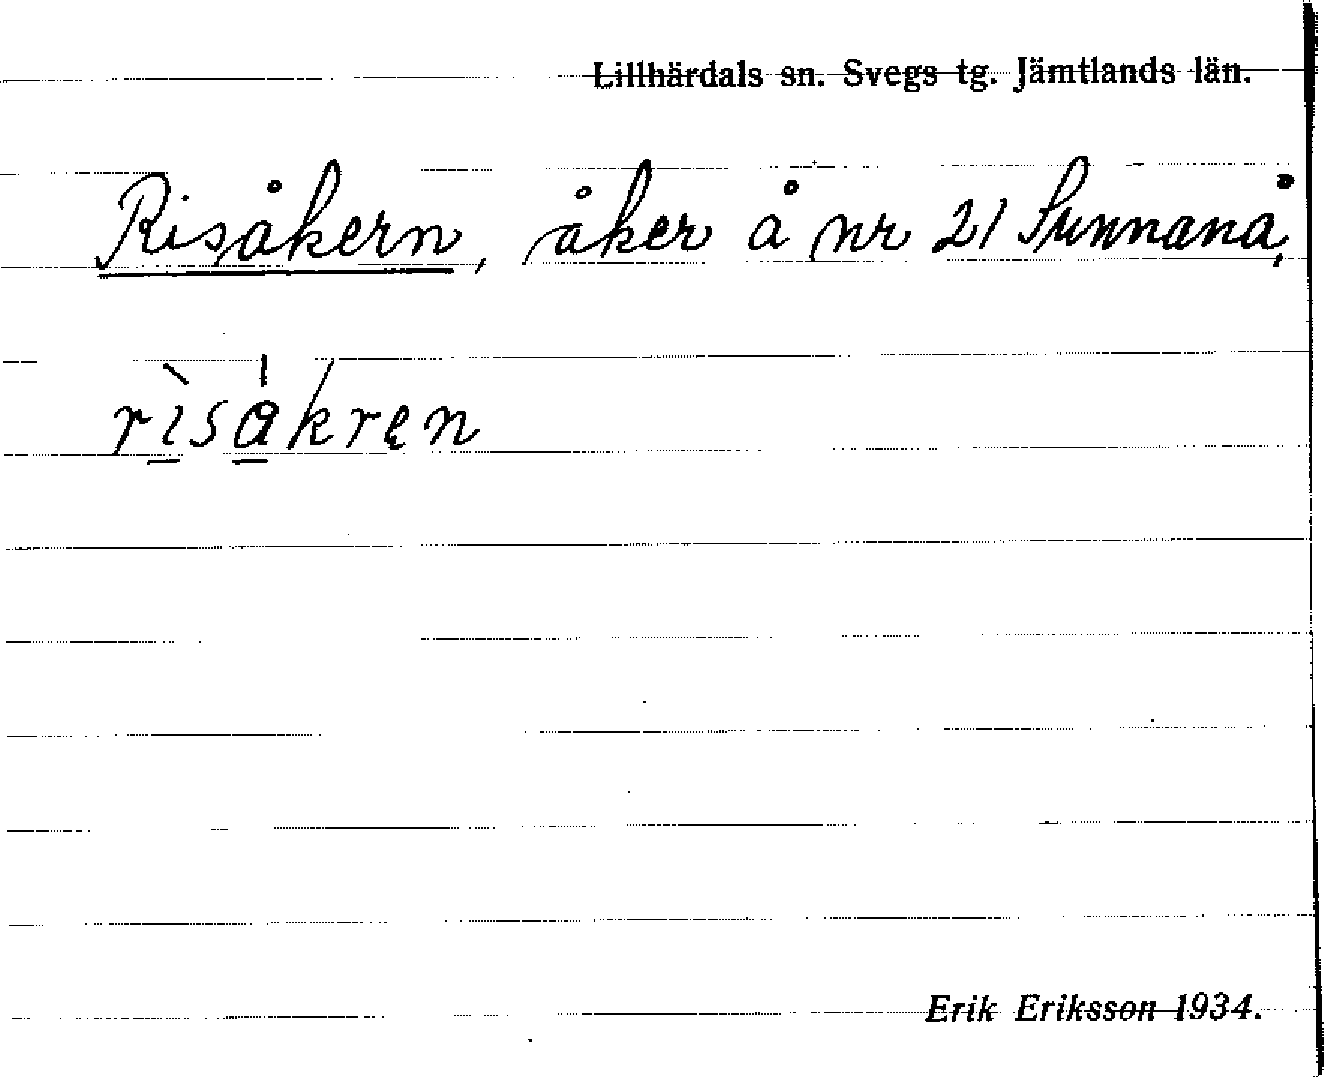 Lillhärdals sn. Svegs tg. Jämtlands län.
Risåkern, åker å nr 21 Sunnanå,
rìsåkren
Erik Eriksson 1934.